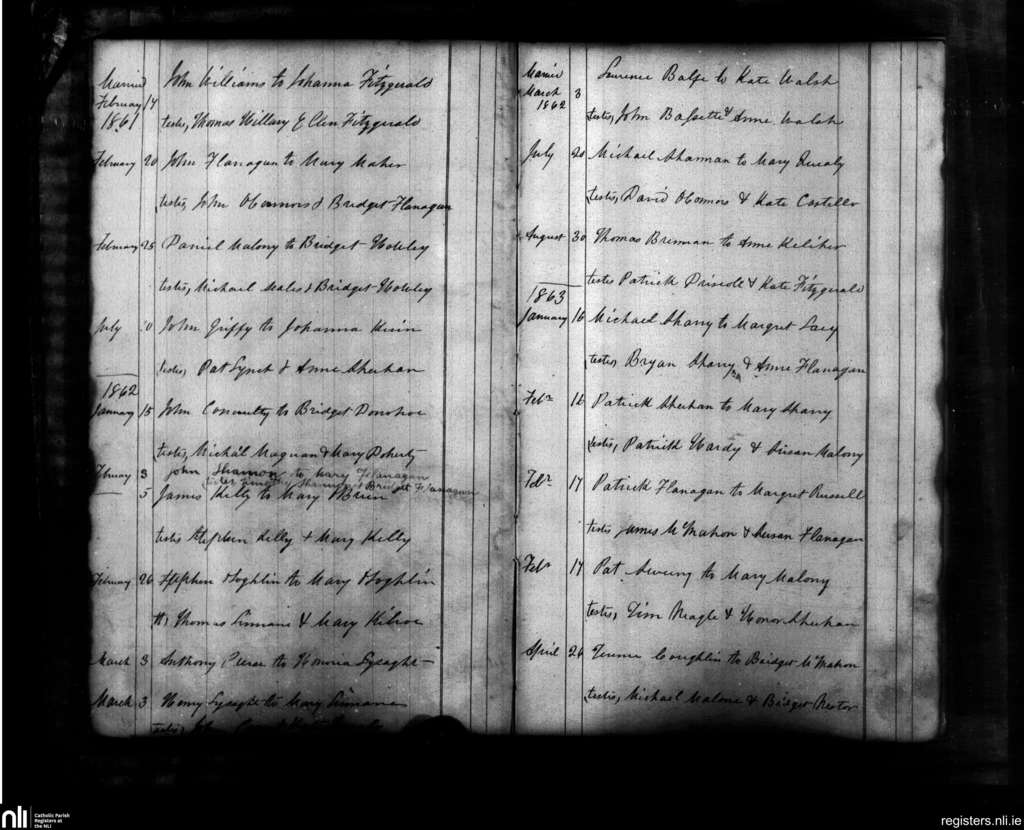 Married
February 14 John Williams to Johanna Fitzgerald
1861 testes, Thomas Hillary & Ellen Fitzgerald
February 20 John Flanagan to Mary Maher
testes, John OConnors & Bridget Flanagan
February 25 Daniel Malony to Bridget
testes, Michael & Bridget
July John Griffy to Johanna
testes, Pat Lynch & Anne Sheehan
1862
January 15 John to Bridget Donohoe
testes, Michal & Mary Doherty
February 3 John Shannon to Mary Flanagan
testes Timothy Shannon & Bridget Flanagan
5 James Kelly to Mary OBrien
testes Stephen Kelly & Mary Kelly
February 26 Stephen OLoghlin to Mary OLoghlin
Thomas & Mary Kilroe
March 3 Anthony to Honoria Lysaght
March 3 Henry Lysaght to Mary
testes,
Married
March 3 Laurence Balfe to Kate Walsh
1862
testes, John & Anne Walsh
July 20 Michael to Mary
testes, David OConnors & Kate Costello
August 30 Thomas Brennan to Anne Keliher
testes Patrick Driscoll & Kate Fitzgerald
1863
January 16 Michael Sharry to Margret Lacy
testes, Bryan Sharry & Anne Flanagan
Feb 16 Patrick Sheehan to Mary Sharry
testes, Patrick Hardy & Susan Malony
Feb 17 Patrick Flanagan to Margret Russell
testes James McMahon & Susan Flanagan
Feb 17 Pat to Mary Malony
testes, Tim Neagle & Honor Sheehan
April 26 Coughlin to Bridget McMahon
testes, Michael Malone & Bridget
nli Catholic Parish
Registers at
the NLI
registers.nli.ie